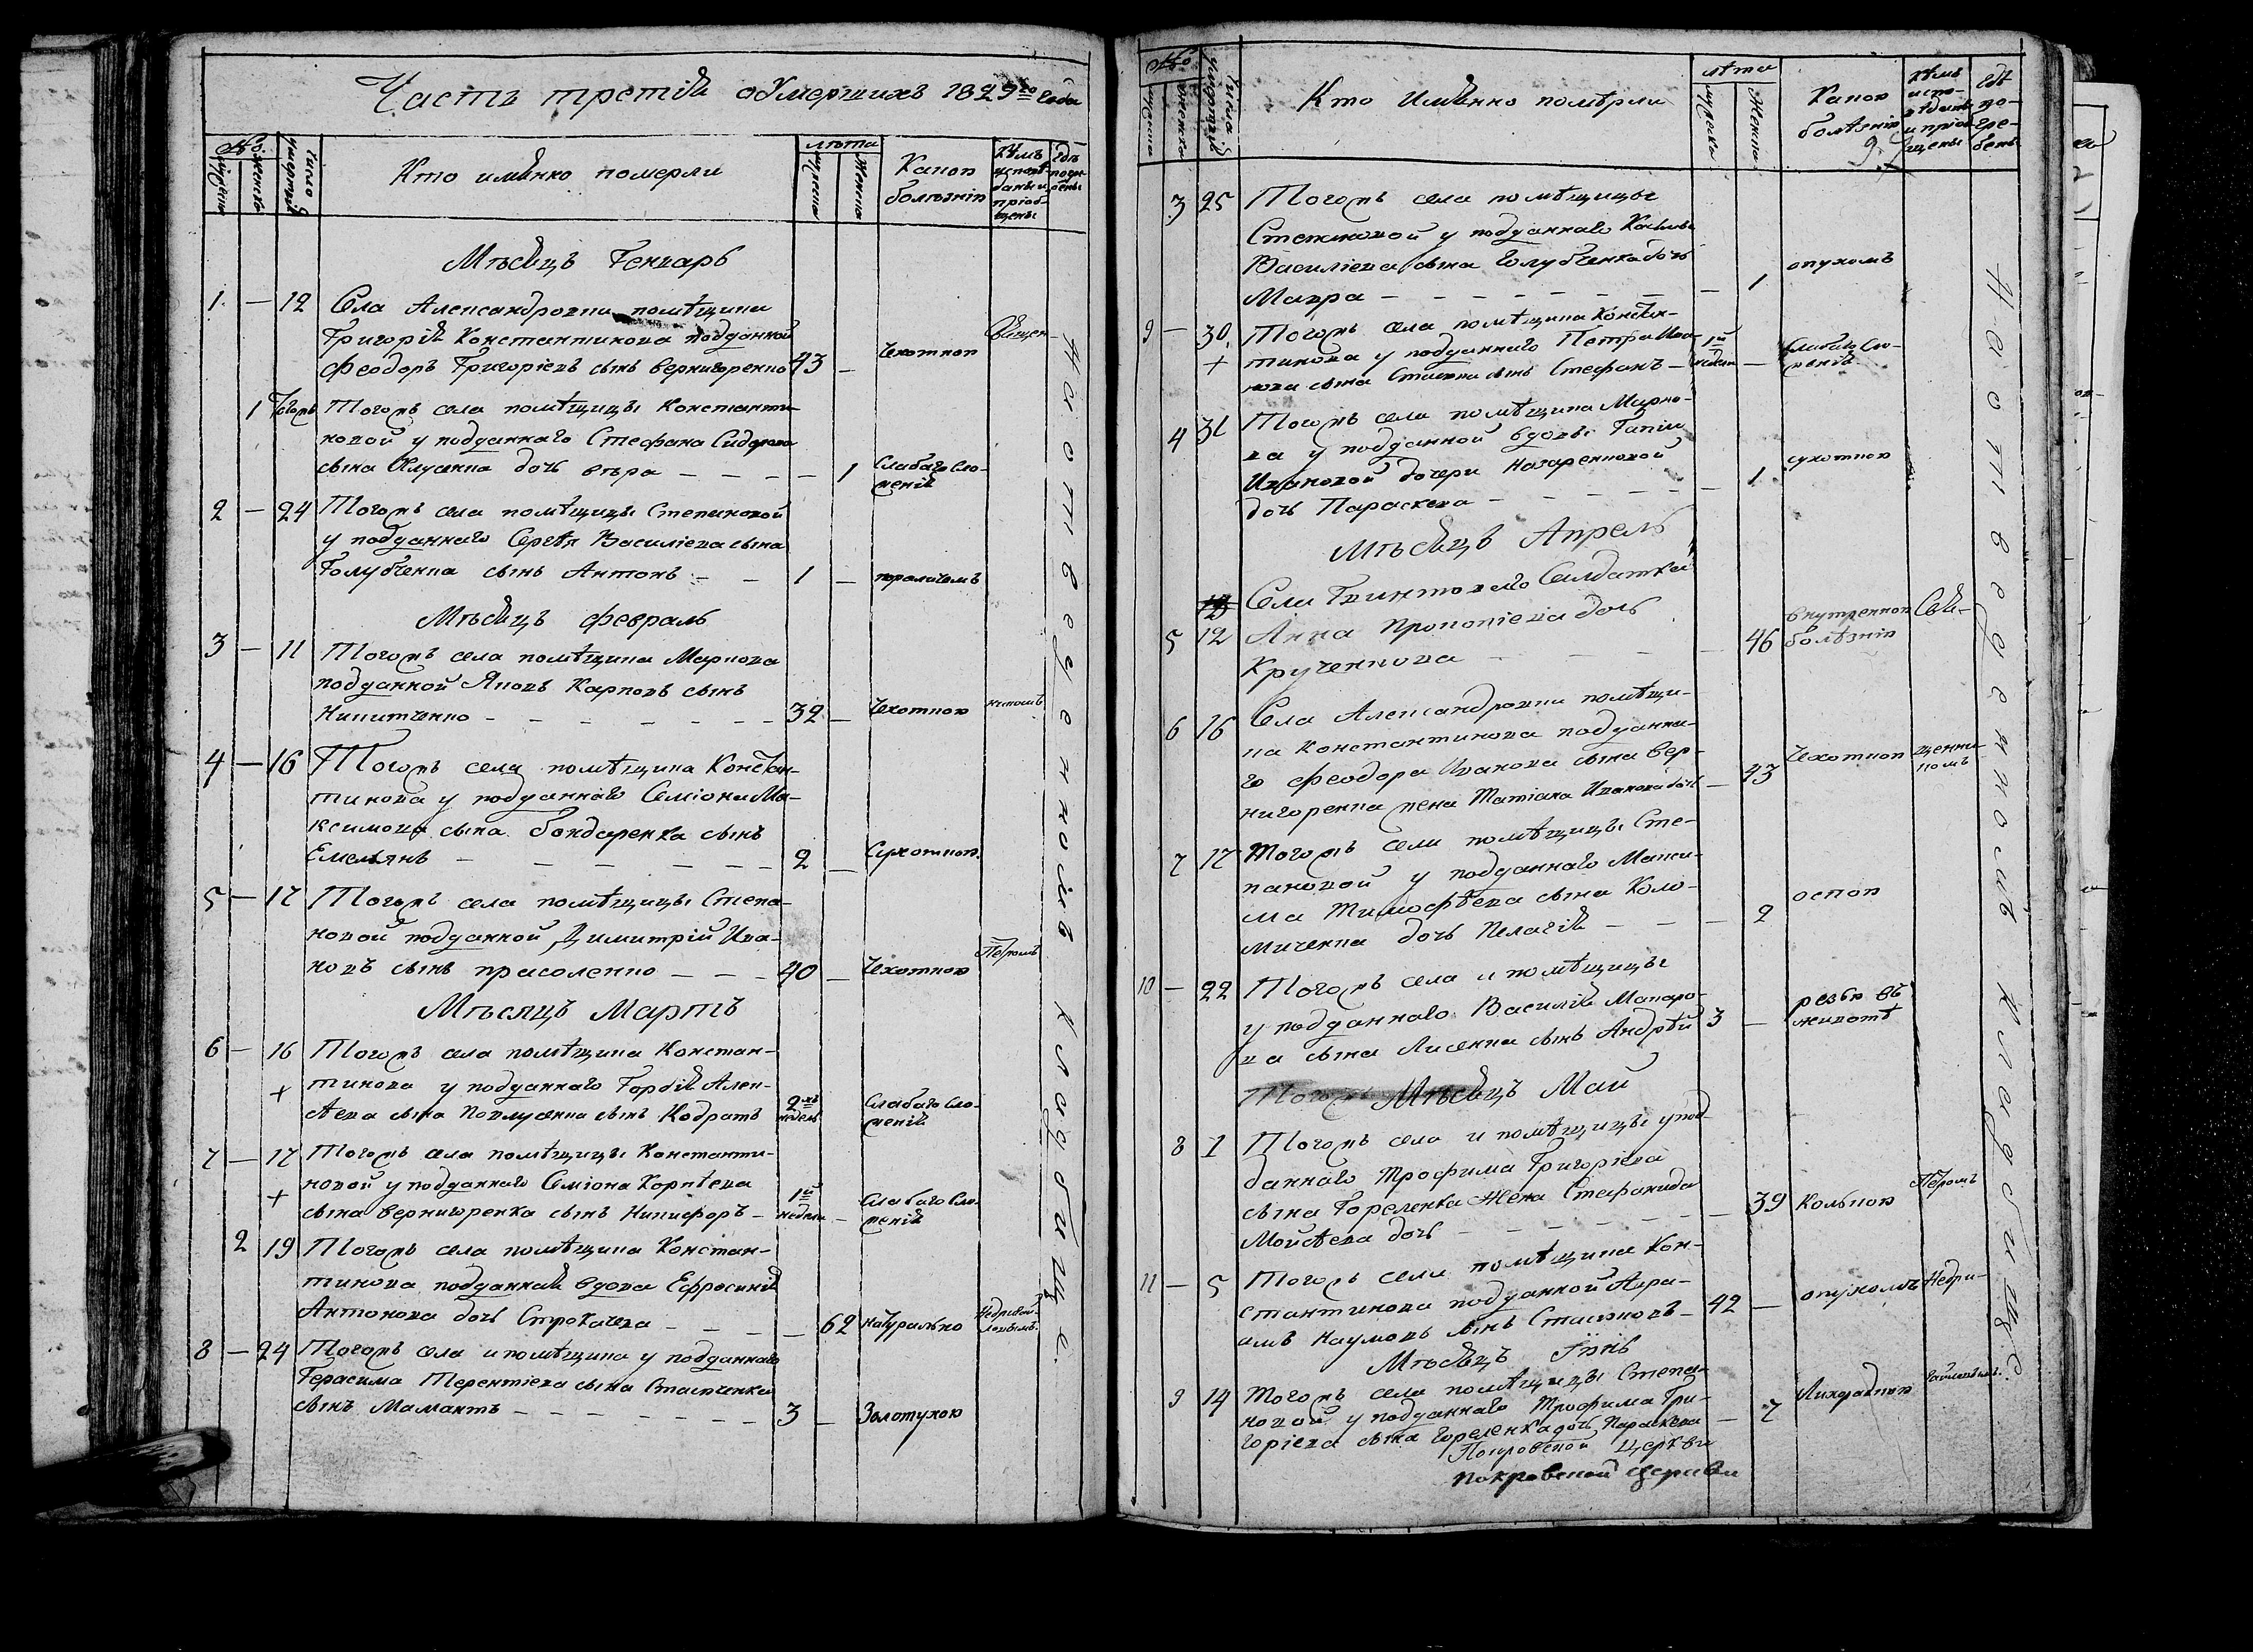 Часть третія оУмершихъ 1829го Года
№.
мужеска
женска
число умертвій
Кто имянно померли
лѣта
мужеска
Женска
Какою болѣзнію
Кѣмъ исповѣданы и пріобщены
Гдѣ погребены
Мѣсяцъ Генварь
1. — 12 Села Александровки помѣщика
Григорія Константинова подданной
Феодоръ Григоріевъ сынъ Вернигоренко 43 — Чахоткою Священ-
1 Тогожъ Тогожъ села помѣщицы Константи-
новой у подданнаго Стефана Сидорова
сына дочь вѣра — — — — 1 Слабаго Сло-
женія
2 — 24 Тогожъ села помѣщицы Степановой
у подданнаго Сергѣя Василіева сына
Голубченка сынъ Антонъ — — 1 — параличемъ
Мѣсяцъ Февраль
3 — 11 Тогожъ села помѣщика Маркова
подданной Яковъ Карповъ сынъ
Никитченко — — — — — — — 32 — Чахоткою никомъ
4 — 16 Тогожъ села помѣщика Констан-
тинова у подданнаго Семіона Ма-
ксимова сына Бондаренка сынъ
Емельянъ — — — — — — 2 — Сухоткою.
5 — 17 Тогожъ села помѣщицы Степа-
новой подданной Димитрій Ива-
новъ сынъ прасоленко — — — 40 — Чахоткою Петромъ
Мѣсяцъ Мартъ
6 — 16 Тогожъ села помѣщика Констан-
+ тинова у подданнаго Гордія Алек-
сѣева сына Павлусенка сынъ Кодратъ 2хъ недель Слабаго Сло-
женія
7 — 17 Тогожъ села помѣщицы Константи-
+ новой у подданнаго Семіона Корнѣева
сына Вернигоренка сынъ Никифоръ — 1й недели — Слабаго Сло-
женія
2 19 Тогожъ села помѣщика Констан-
тинова подданная вдова Ефросинія
Антонова дочь — — — — 62 натурально
8 — 24 Тогожъ села и помѣщика у подданнаго
Герасима Терентіева сына Стасюченка
сынъ Мамантъ — — — — — — — 3 — Золотухою
На отведенномъ кладбище.
№
мужеска
женска
Числа умертвій
Кто Имянно померли
лѣта
мужеска
Женска
Какою болѣзнію
Кѣмъ испо-
вѣданы
и пріоб-
щены
Гдѣ по-
гре-
бены
97
3 25 Тогожъ села помѣщицы
Степановой у подданнаго
Василіева сына Голубченка дочь
Мавра — — — — — — — — 1 опухомъ
9 — 30. Тогожъ села помѣщика Констан-
+ тинова у подданнаго Петра Ива-
нова сына сынъ Стефанъ — 1й недели — Слабаго Сло-
женія
4 31 Тогожъ села помѣщика Марко-
ва у подданной вдовы
Ивановой дочери Назаренковой
дочь Параскева — — — — — — 1 сухоткою
Мѣсяцъ Апрель
Села Гвинтоваго Салдатка
5 12 Анна Прокопіева дочь
Крученкова — — — — 46 внутренною болѣзнію Свя-
6 16 Села Александровки помѣщи-
ка Константинова подданна-
го Феодора Иванова сына Вер-
нигоренка жена Татіана Иванова дочь — 43 Чахоткою щенни-
комъ
7 17 Тогожъ села помѣщицы Сте-
пановой у подданнаго Макси-
ма Тимофѣева сына Коло-
миченка дочь Пелагія — — — 2 оспою
10 — 22 Тогожъ села и помѣщицы
у подданнаго Василія Макаро-
ва сына Лисенка сынъ Андрѣй 3 — резью въ
животѣ
Мѣсяцъ Май
8 1 Тогожъ села и помѣщицы у под-
даннаго Трофима Григоріева
сына Гореленка Жена Стефанида
Мойсѣева дочь — — — — — — 39 Колькою Петромъ
11 — 5 Тогожъ села помѣщика Кон-
стантинова подданной Авра-
амъ Наумовъ сынъ — 42 — опухомъ Недри-
Мѣсяцъ Іюнь
9 14 Тогожъ села помѣщицы Степа-
новой у подданнаго Трофима Гри-
горіева сына Гореленка дочь Параскева — 7 Лихрадкою гайловымъ.
Покровской Церкви
Покровской церкви
На отведенномъ кладбище